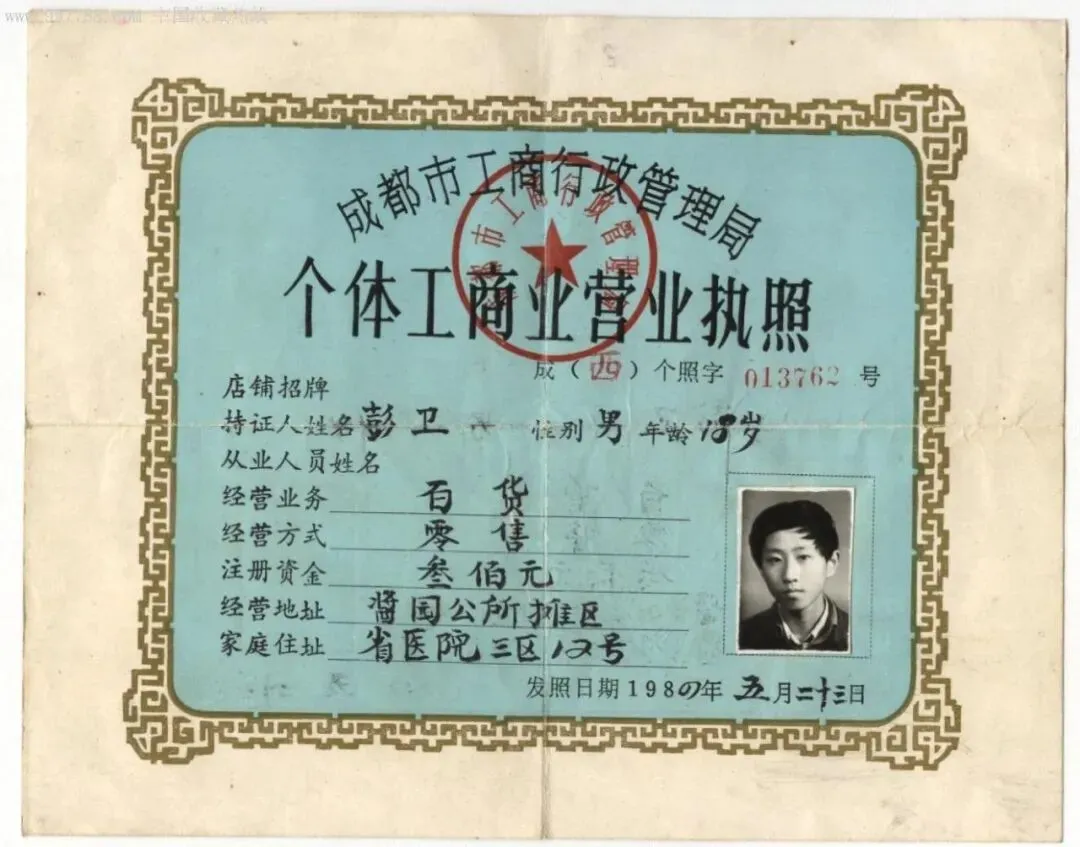 中国收藏热线
成都市工商行政管理局
市工商行政管理
个体工商业营业执照
成（西）个照字 013762 号
店铺招牌
持证人姓名 彭卫 性别 男 年龄 18岁
从业人员姓名
经营业务 百货
经营方式 零售
注册资金 叁佰元
经营地址 酱园公所摊区
家庭住址 省医院三区12号
发照日期 198 年 五月二十三日